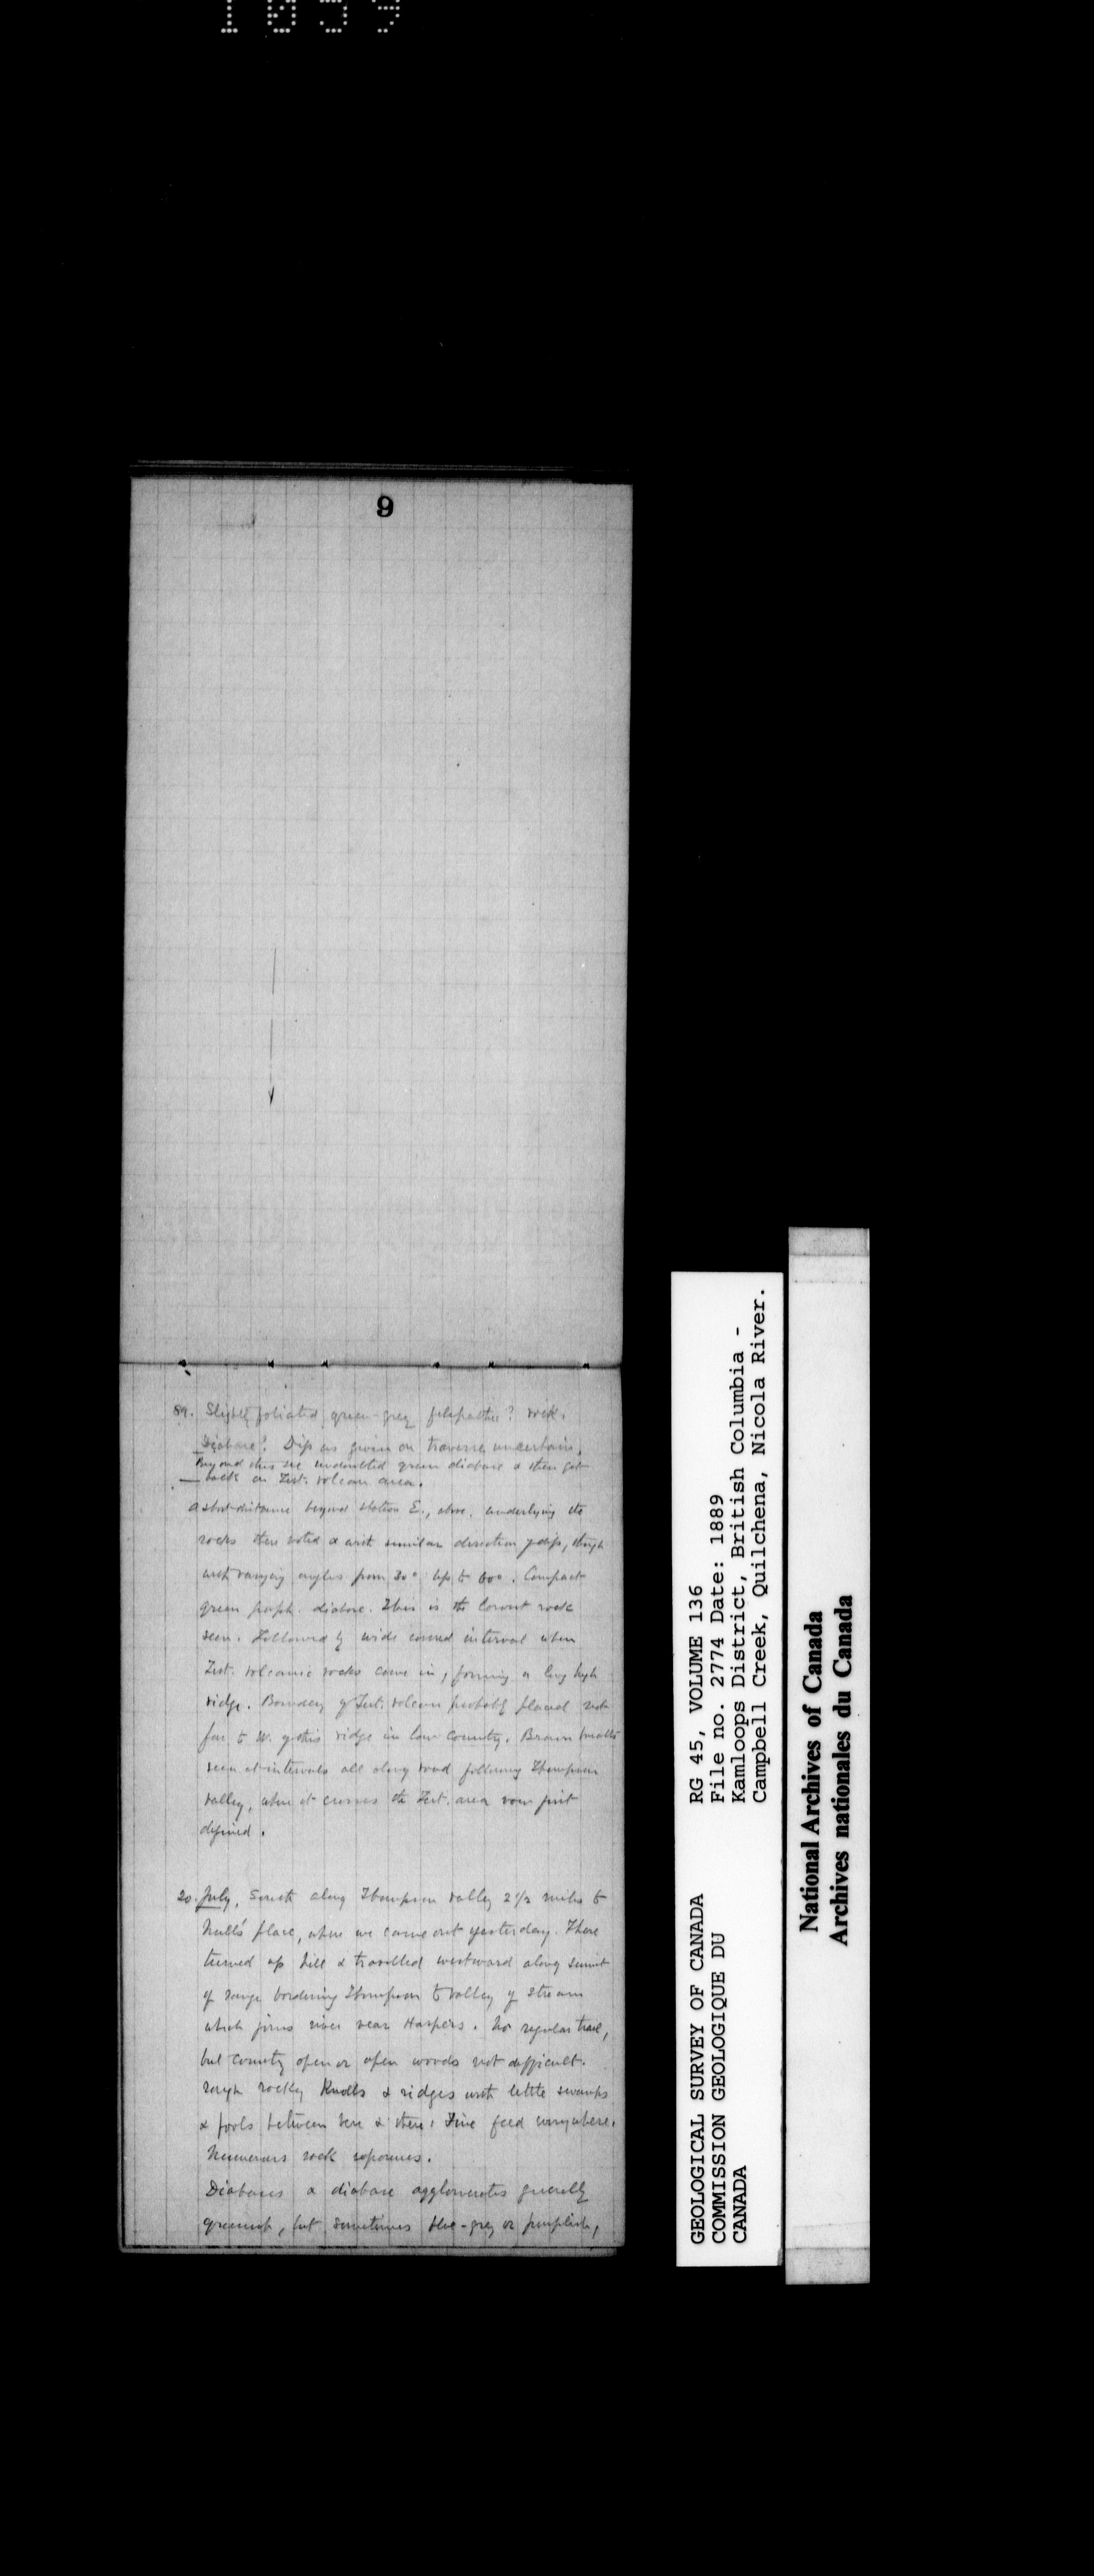 1859
9
89. Slightly foliated green-grey felspathic? rock.
Diabase? Dip as given on traverse, uncertain.
Beyond this see undoubted green diabase & then get
back on Tert. volcan area.
A short distance beyond station E., above, underlying the
rocks there noted & with similar direction of dip, though
with varying angles from 30° up to 60°. Compact
green porph. diabase. This is the lowest rock
seen. Followed by wide covered interval when
Tert. volcanic rocks come in, forming a long high
ridge. Boundary of Tert. volcan probably placed not
far to W. of this ridge in low country. Brown
seen at intervals all along road following Thompson
valley, where it crosses the Tert. area now just
defined.
20. July, South along Thompson valley 2 1/2 miles to
place, where we came out yesterday. There
turned up hill & travelled westward along summit
of range bordering Thompson to valley of stream
which joins river near Harpers. No regular trail,
but country open or open woods not difficult.
rough rocky knolls & ridges with little swamps
& pools between here & there. Fine feed everywhere.
Numerous rock exposures.
Diabases & diabase agglomerates generally
greenish, but sometimes blue-grey or purplish,
GEOLOGICAL SURVEY OF CANADA
COMMISSION GEOLOGIQUE DU
CANADA
RG 45, VOLUME 136
File no. 2774 Date: 1889
Kamloops District, British Columbia -
Campbell Creek, Quilchena, Nicola River.
National Archives of Canada
Archives nationales du Canada